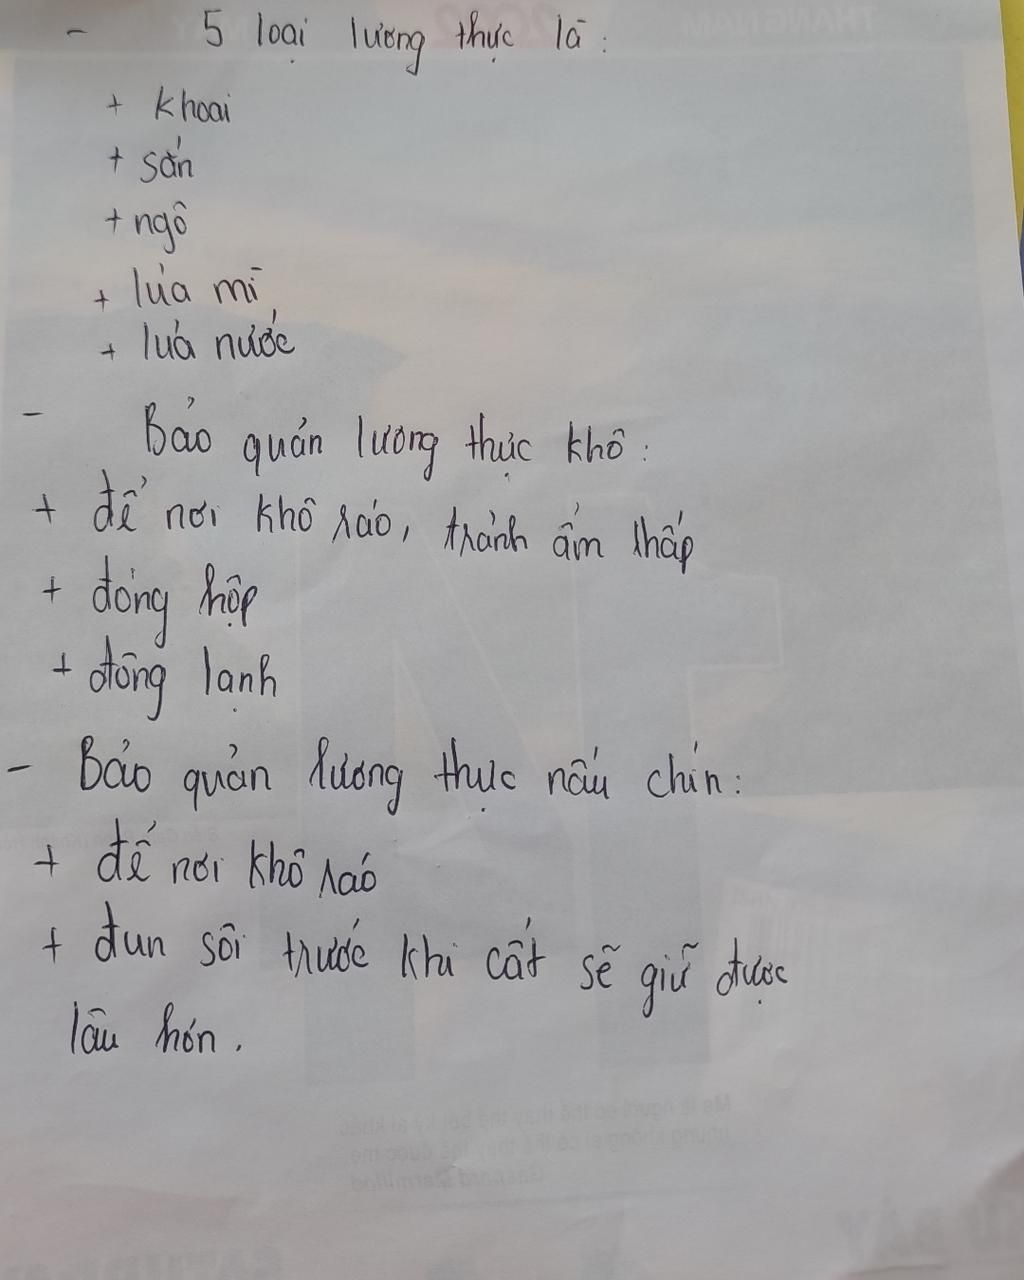 - 5 loại lương thực là:
+ khoai
+ sắn
+ ngô
+ lúa mì
+ lúa nước
- Bảo quản lương thực khô:
+ để nơi khô ráo, tránh ẩm thấp
+ đóng hộp
+ đông lạnh
- Bảo quản lương thực nấu chín:
+ để nơi khô ráo
+ đun sôi trước khi cất sẽ giữ được
lâu hơn.